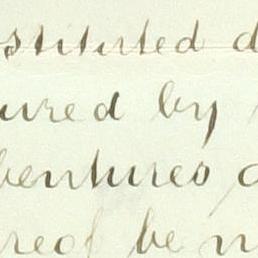 stituted d
ured by
bentures a
reof be n